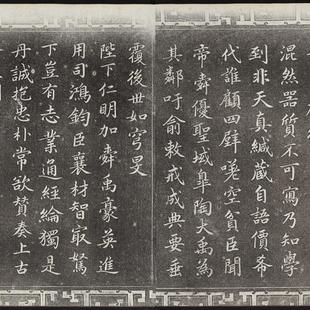 混然器質不可寫乃知學
到非天真緘藏自語價希
代誰顧四壁嗟空貧臣聞
帝舜優聖域皋陶大禹為
其鄰吁俞敕戒成典要垂
覆後世如穹旻
陛下仁明加舜禹豪英進
用司鴻鈞臣襄材智冣駑
下豈有志業通經綸獨是
丹誠抱忠朴常欲贊奏上古